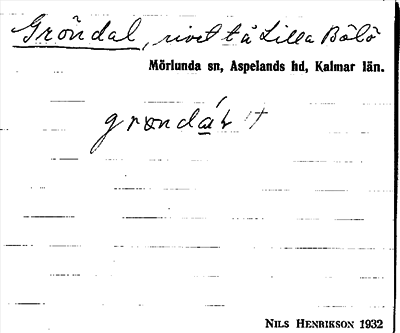 Gröndal, rivet t å Lilla Bölö
Mörlunda sn, Aspelands hd, Kalmar län.
grøndáɫ
NILS HENRIKSON 1932